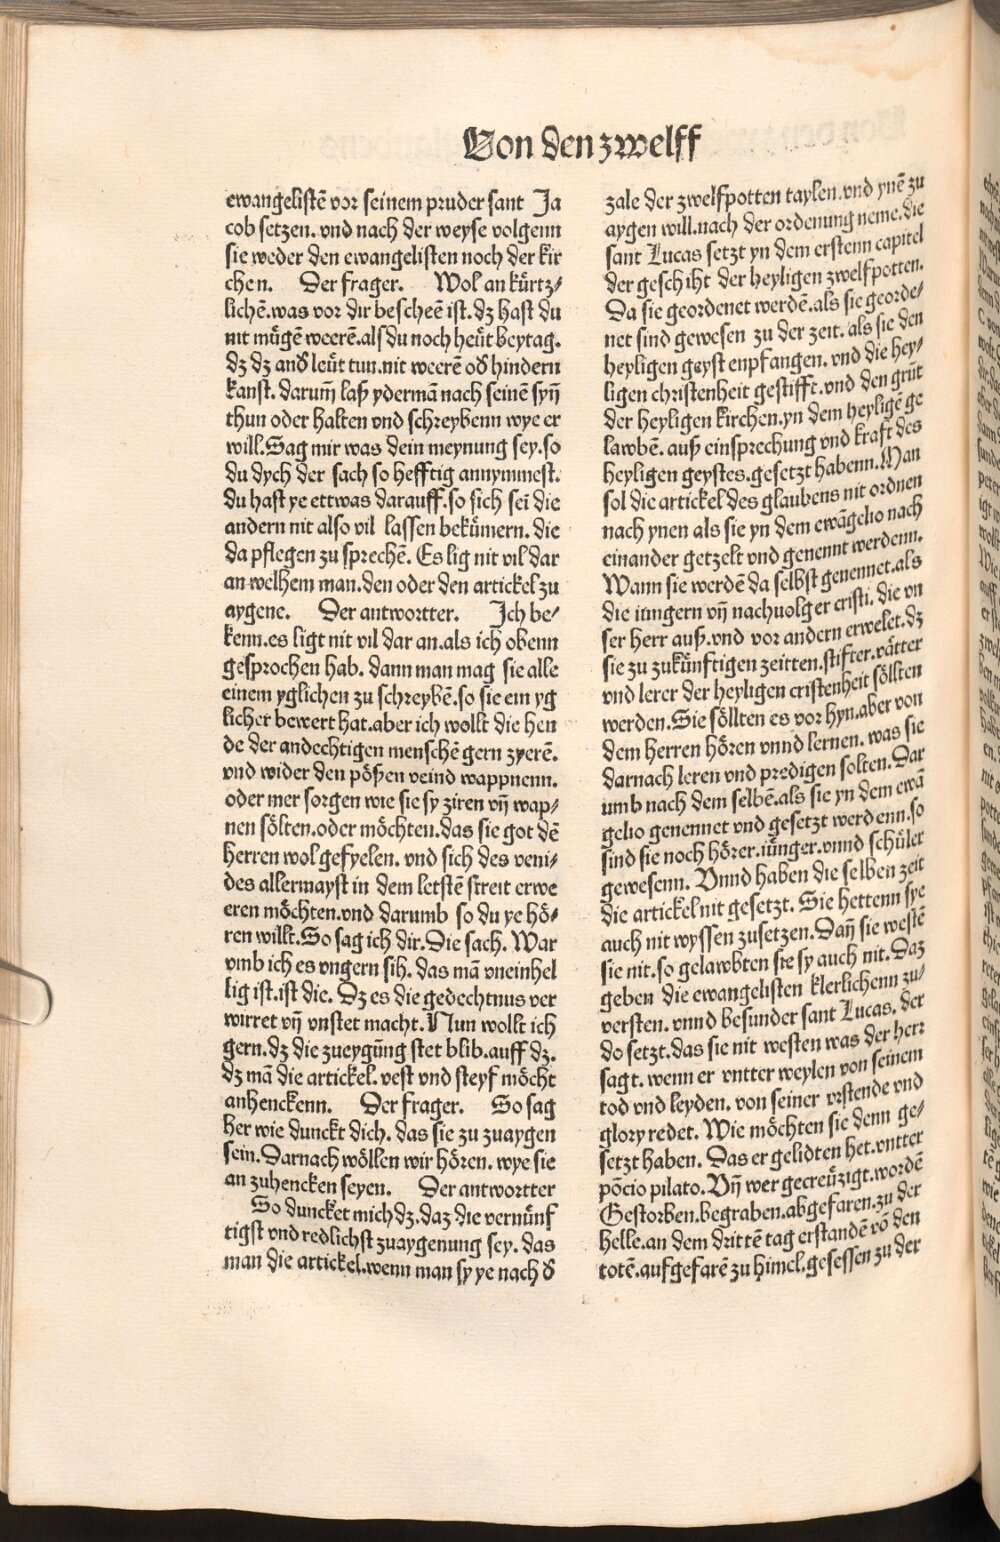 Von den zwelff
ewangelistē vor seinem pruder sant Ja
cob setzen. vnd nach der weyse volgenn
sie weder den ewangelisten noch der kir
chen. Der frager. Wol an kürtz⸗
lichē.was vor dir bescheē ist.dz hast du
nit mügē weerē.als du noch heüt beytag.
dz dz andˀ leüt tun.nit weerē odˀ hindern
kanst. darum̄ laß ydermā nach seinē syn̄
thun oder halten vnd schreybenn wye er
will.Sag mir was dein meynung sey.so
du dych der sach so hefftig annymmest.
du hast ye ettwas darauff.so sich sei die
andern nit also vil lassen bekümern. die
da pflegen zu sprechē. Es lig nit vil dar
an welhem man.den oder den artickel zu
aygene. Der antwortter. Ich be⸗
kenn.es ligt nit vil dar an.als ich obenn
gesprochen hab. dann man mag sie alle
einem yglichen zu schreybē.so sie ein yg
licher bewert hat.aber ich wollt die hen
de der andechtigen menschē gern zyerē.
vnd wider den pößen veind wappnenn.
oder mer sorgen wie sie sy ziren vn̄ wap⸗
nen sölten.oder möchten.das sie got dē
herren wol gefyelen. vnd sich des veni⸗
des allermayst in dem letstē streit erwe
eren möchten.vnd darumb so du ye hö⸗
ren willt.So sag ich dir.Die sach. War
vmb ich es vngern sih. das mā vneinhel
lig ist.ist die. Dz es die gedechtnus ver
wirret vn̄ vnstet macht. Nun wollt ich
gern.dz die zueygūng stet blib.auff dz.
dz mā die artickel. vest vnd steyf möcht
anhenckenn. Der frager. So sag
her wie dunckt dich. das sie zu zuaygen
sein.Darnach wöllen wir hören. wye sie
an zuhencken seyen. Der antwortter
So duncket mich dz.daz die vernünf
tigst vnd redlichst zuaygenung sey. das
man die artickel.wenn man sy ye nach dˀ
zale der zwelfpotten taylen.vnd ynē zu
aygen will.nach der ordenung neme.die
sant Lucas setzt yn dem erstenn capitel
der geschiht der heyligen zwelfpotten.
Da sie geordenet werdē.als sie georde⸗
net sind gewesen zu der zeit. als sie den
heyligen geyst enpfangen. vnd die hey⸗
ligen christenheit gestifft.vnd den grūt
der heyligen kirchen.yn dem heyligē ge
lawbē. auß einsprechung vnd kraft des
heyligen geystes.gesetzt habenn.Man
sol die artickel des glaubens nit ordnen
nach ynen als sie yn dem ewāgelio nach
einander getzelt vnd genennt werdenn.
Wann sie werdē da selbst genennet.als
die iungern vn̄ nachuolger cristi. die vn
ser herr auß.vnd vor andern erwelet.dz
sie zu zukünftigen zeitten.stifter.vätter
vnd lerer der heyligen cristenheit söllten
werden.Sie söllten es vor hyn.aber von
dem herren hören vnnd lernen. was sie
darnach leren vnd predigen solten.Dar
umb nach dem selbē.als sie yn dem ewā
gelio genennet vnd gesetzt werdenn.so
sind sie noch hörer.iünger.vnnd schüler
gewesenn. Vnnd haben die selben zeit
die artickel nit gesetzt. Sie hettenn sye
auch nit wyssen zusetzen.Dan̄ sie westē
sie nit.so gelawbten sie sy auch nit.Daz
geben die ewangelisten klerlichenn zu⸗
versten. vnnd besunder sant Lucas. der
do setzt.das sie nit westen was der herr
sagt. wenn er vntter weylen von seinem
tod vnd leyden. von seiner vrstende vnd
glory redet. Wie möchten sie denn ge⸗
setzt haben. Das er gelidten het.vntter
pōcio pilato.Vn̄ wer gecreüzigt.wordē
Gestorben.begraben.abgefaren.zu der
helle.an dem drittē tag erstandē vō den
totē.aufgefarē zu himel.gesessen zu der